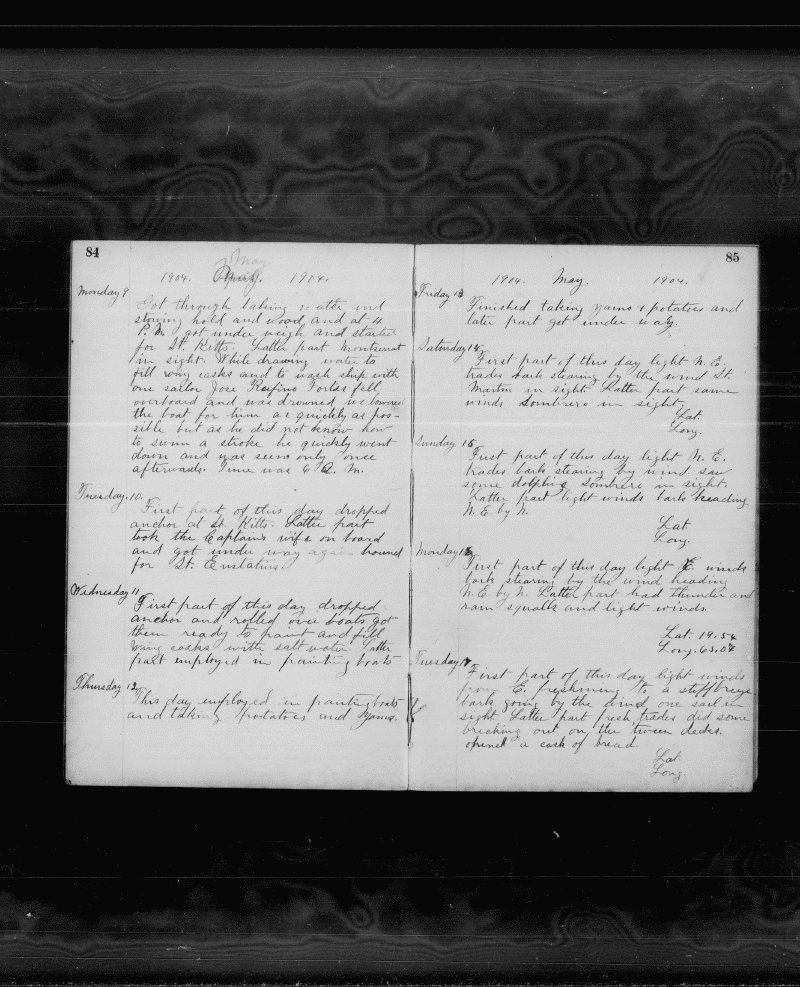 84
May
1904. 1904.
Monday 9
Got through taking water and
stowing hold and wood and at 4
P.M. got under weigh and started
for St. Kitts. Latter part Montserrat
in sight. While drawing water to
fill wing casks and to wash ship with
one sailor Jose Rufino Fortes fell
overboard and was drowned we lowered
the boat for him as quickly as pos-
sible but as he did not know how
to swim a stroke he quickly went
down and was seen only once
afterwards. Time was 6 A. M.
Tuesday. 10.
First part of this day dropped
anchor at St. Kitts. Latter part
took the Captains wife on board
and got under way again bound
for St. Eustatius
Wednesday 11
First part of this day dropped
anchor and rolled over boats got
them ready to paint and fill
wing casks with salt water. Latter
part employed in painting boats
Thursday 12
This day employed in painting boats
and taking potatoes and yams.
85
1904. May. 1904.
Friday 13
Finished taking yams & potatoes and
later part got under way.
Saturday 14
First part of this day light N. E.
trades bark stearing by the wind St.
Martin in sight. Latter part same
winds Sombrero in sight.
Lat.
Long.
Sunday 15
First part of this day light N. E.
trades bark stearing by wind saw
some dolphins Sombrero in sight.
Latter part light winds bark heading
N. E. by N.
Lat
Long.
Monday 16
First part of this day light E. winds
bark stearing by the wind heading
N.E. by N. Latter part had thunder and
rain squalls and light winds.
Lat. 19.54
Long. 63.07
Tuesday 17
First part of this day light winds
from E. freshning to a stiff breeze
bark going by the wind one sail in
sight Latter part fresh trades did some
breaking out on the tween decks.
opened a cask of bread
Lat.
Long